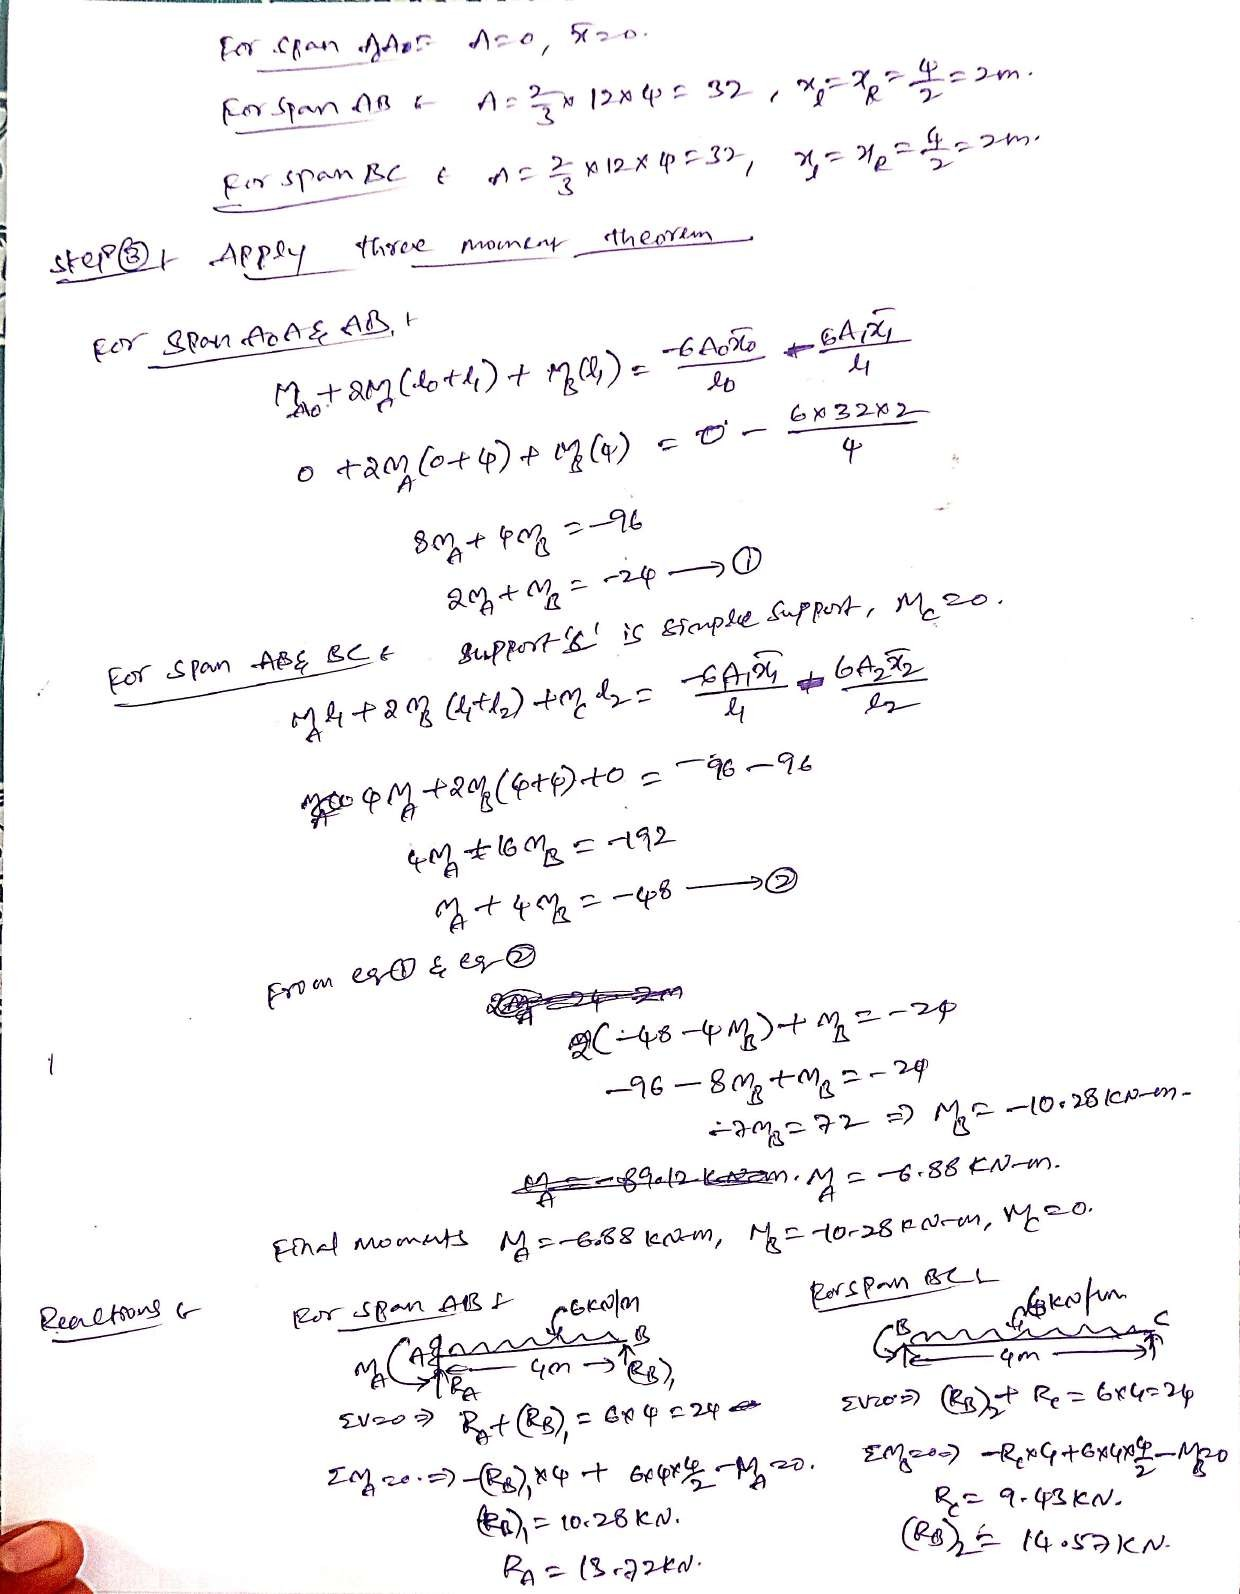 For span AA₀ :- A=0, x̄=0.
For span AB :- A = 2/3 × 12×4 = 32 , x_l = x_R = 4/2 = 2m.
For span BC :- A = 2/3 × 12 × 4 = 32, x_l = x_R = 4/2 = 2m.
Step ③ :- Apply three moment theorem
For Span A₀A & AB, :-
M_A₀ + 2M (l₀+l₁) + M_B(l₁) = -6A₀x̄₀/l₀ - 6A₁x̄₁/l₁
0 + 2M_A (0+4) + M_B(4) = 0 - 6×32×2/4
8M_A + 4M_B = -96
2M_A + M_B = -24 → ①
For span AB & BC :- Support 'C' is simple support, M_C=0.
M_A l₁ + 2M_B (l₁+l₂) + M_C l₂ = -6A₁x̄₁/l₁ - 6A₂x̄₂/l₂
4M_A + 2M_B(4+4)+0 = -96-96
4M_A + 16M_B = -192
M_A + 4M_B = -48 → ②
From eq① & eq②
2(-48-4M_B)+M_B = -24
-96-8M_B+M_B = -24
-7M_B = 72 ⇒ M_B = -10.28 KN-m.
M_A = -6.88 KN-m.
Final moments M_A = -6.88 KN-m, M_B = -10.28 KN-m, M_C=0.
Reactions :- For span AB :- For span BC :-
6KN/m 6KN/m
M_A A B B C
4m 4m
R_A (R_B)₁
ΣV=0 ⇒ R_A+(R_B)₁ = 6×4 = 24 ΣV=0 ⇒ (R_B)₂+R_C = 6×4=24
ΣM_A=0. ⇒ -(R_B)₁×4 + 6×4×4/2 - M_A=0. ΣM_B=0 ⇒ -R_C×4+6×4×4/2-M_B=0
(R_B)₁ = 10.28 KN. R_C = 9.43 KN.
R_A = 13.72 KN. (R_B)₂ = 14.57 KN.